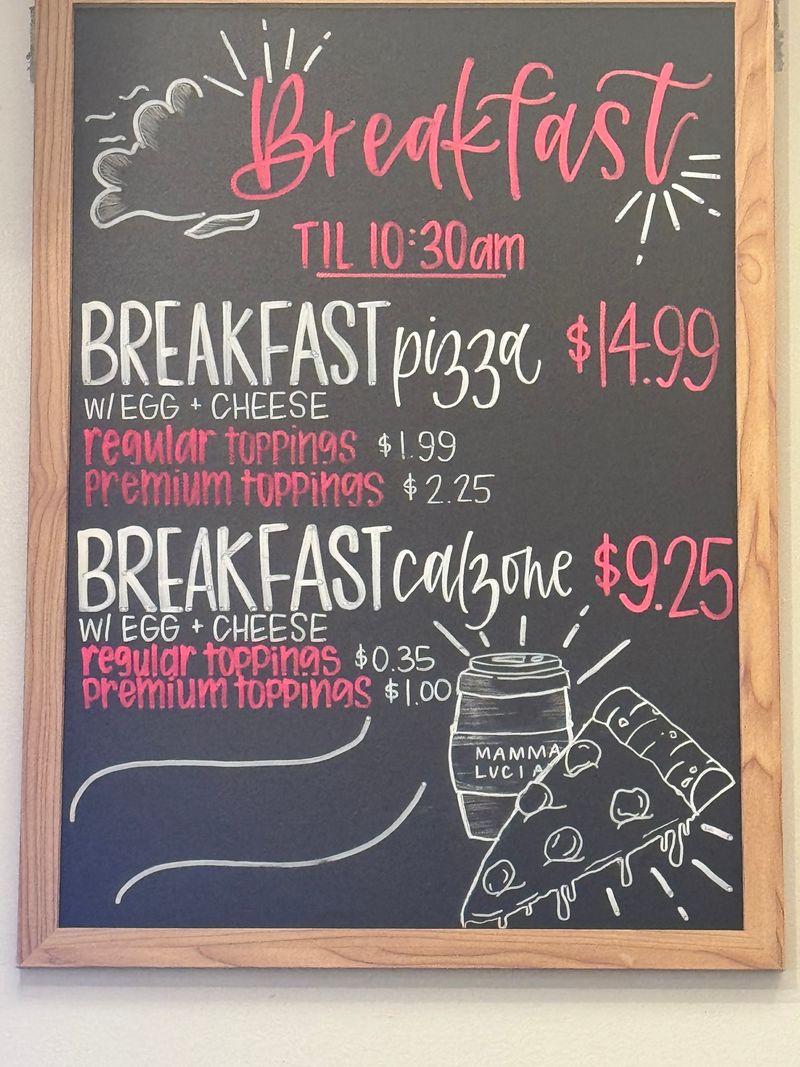 Breakfast
TIL 10:30am
BREAKFAST pizza $14.99
W/ EGG + CHEESE
regular toppings $1.99
premium toppings $2.25
BREAKFAST calzone $9.25
W/ EGG + CHEESE
regular toppings $0.35
premium toppings $1.00
MAMMA
LUCIA